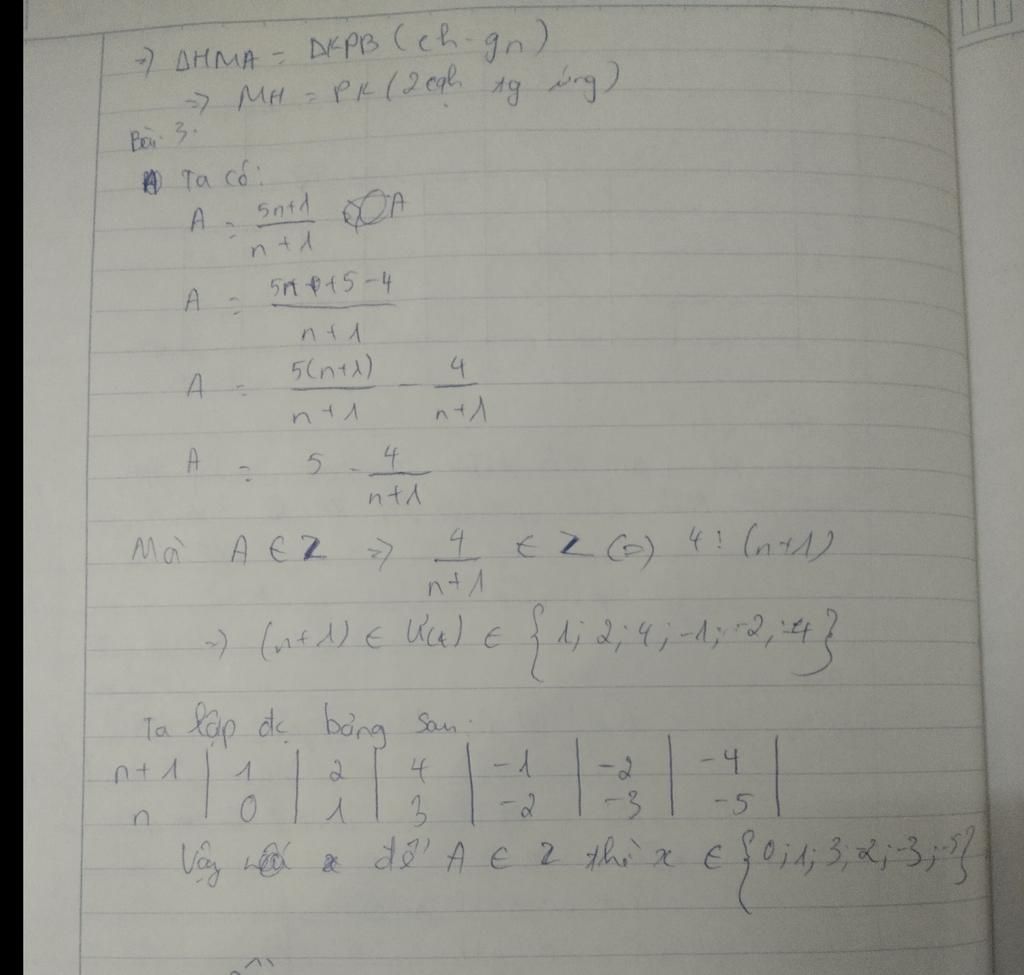 => ΔHMA = ΔKPB (ch - gn)
=> MH = PK (2 cạh tg ứng)
Bài 3.
Ta có:
A = 5n+1 / n+1
A = 5n+5-4 / n+1
A = 5(n+1) / n+1 - 4 / n+1
A = 5 - 4 / n+1
Mà A ∈ Z => 4 / n+1 ∈ Z (=) 4 ⋮ (n+1)
=> (n+1) ∈ Ư(4) ∈ {1; 2; 4; -1; -2; -4}
Ta lập đc bảng sau:
n+1 | 1 | 2 | 4 | -1 | -2 | -4 |
n | 0 | 1 | 3 | -2 | -3 | -5 |
Vậy để A ∈ Z thì x ∈ {0; 1; 3; 2; -3; -5}